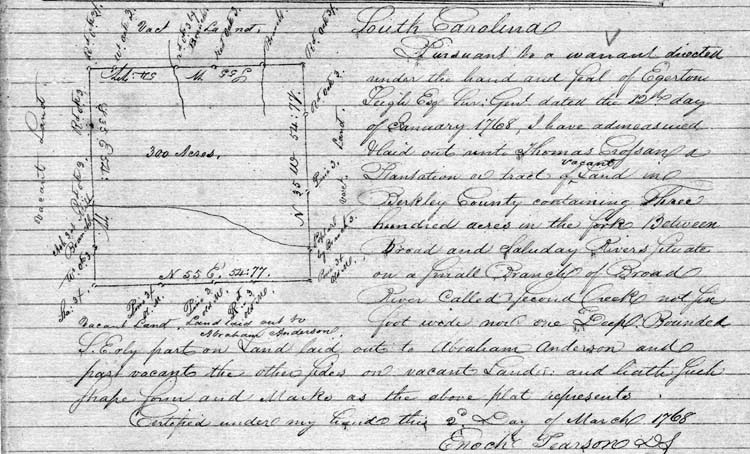 South Carolina
Pursuant to a warrant directed
under the hand and seal of Egerton
Leigh Esq Sur: Genl dated the 12th day
of January 1768, I have admeasured
& laid out unto Thomas Crosson a
Plantation or tract of vacant Land in
Berkley County containing Three
hundred acres in the fork Between
Broad and Saluday Rivers situate
on a Small Branch of Broad
River Called Second Creek not six
foot wide nor one Deep: Bounded
S. Erly part on Land laid out to Abraham Anderson and
part vacant the other sides on vacant Lands: and hath such
shape form and Marks as the above plat represents
Certified under my hand this 2d. Day of March 1768
Enoch Pearson DS
Vact Land.
Vacant Land.
300 Acres.
N 35 W 54:77.
Pine 3.
Land
vact.
N 55 E. 54:77.
Vacant Land.
Land laid out to
Abraham Anderson